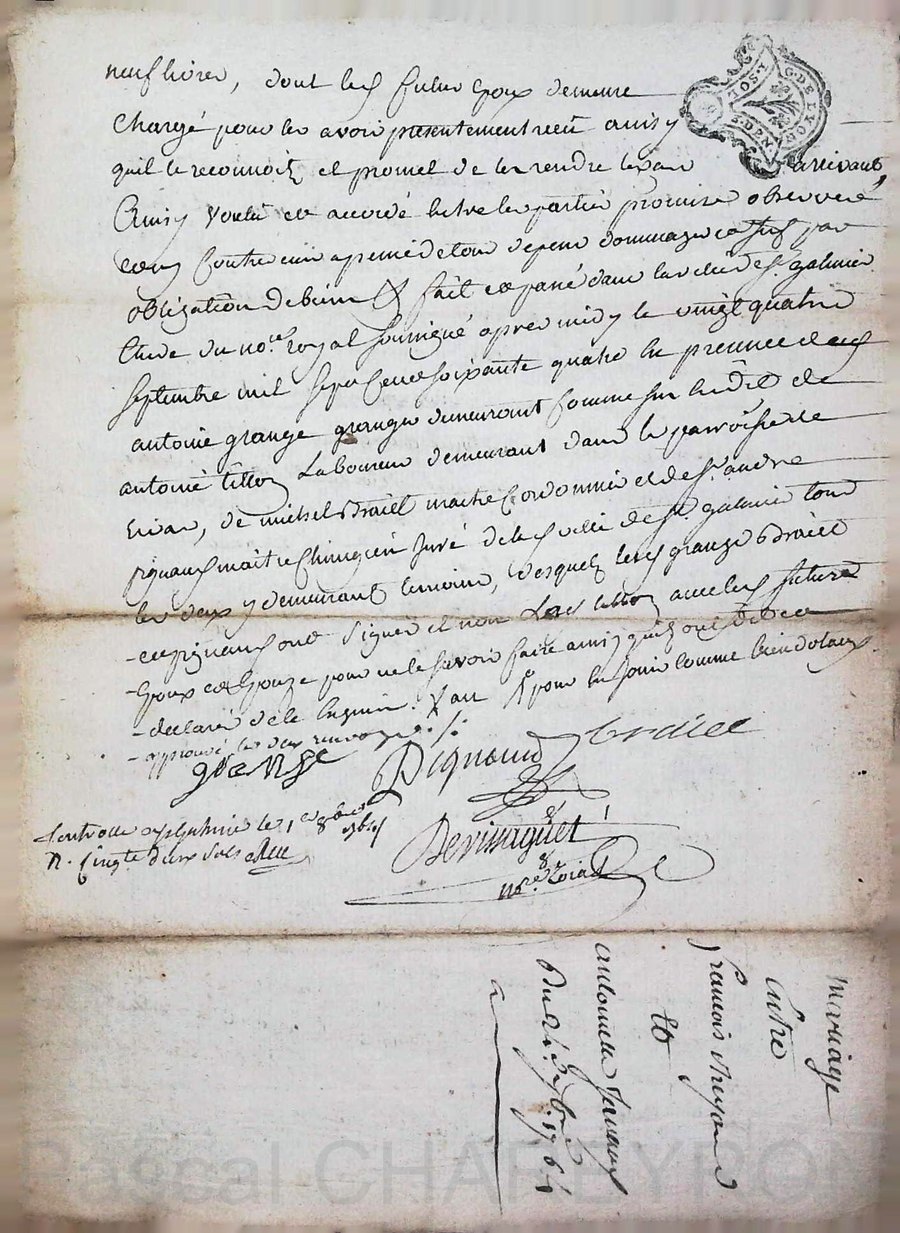 neuf livres, dont led. futur Epoux demeure
chargé pour les avoir presentement reçu ainsy
quil le reconnoit et promet de les rendre le cas arrivant,
Ainsy voulu et accordé entre les parties promis observer
contrevenir a peine de tous depens dommages par
obligation de biens &. fait et passé dans la ville de St. galmier
Etude du nore. royal soussigné apres midy le vingt quatre
septembre mil sept cent soixante quatre en presence de
antoine grange granger demeurant comme sur led. de
antoine tillon Laboureur demeurant dans la parroisse de
de michel Braict maitre Cordonnier et de Sr. andre
pignaud maitre Chirurgien Juré de la ville de St. galmier tous
les deux y demeurant temoins, desquels lesd. grange Braict
- et pignaud ont signé et non led. tillon avec lesd. futurs
- Epoux et Epouze pour ne le savoir faire ainsy quils ont
- declaré de ce Enquis. pour En Jouir comme bien dotaux
- approuvé les deux renvoys ./.
grange Pignaud braict
Controllé a St galmier le 1er 8bre 1764
R. Cinqte deux sols
Devissaguet
nore. Roial
G. DE LYON
S. DEN.
mariage
Entre
francois
Et
antoinette
Du 24. 7bre. 1764
Pascal CHAPEYRON